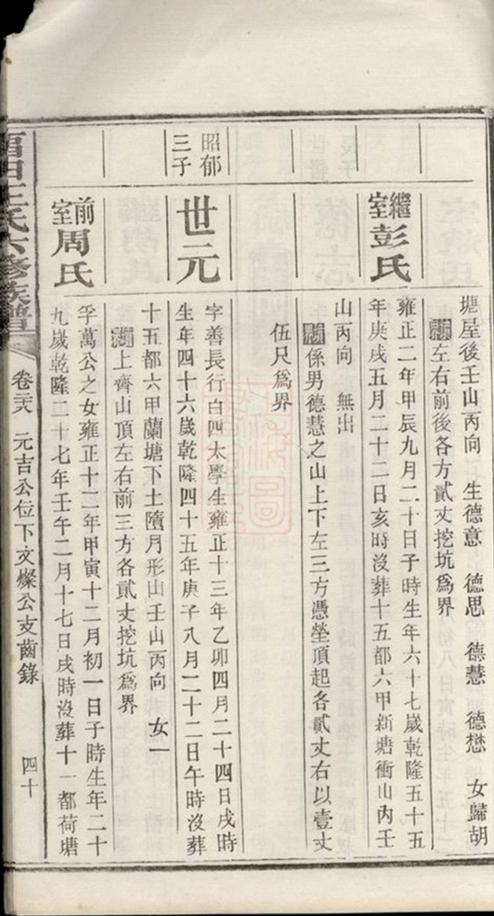 塘屋後壬山丙向　生德意　德思　德慧　德懋　女歸胡
左右前後各方貳丈挖坑爲界
繼室彭氏
雍正二年甲辰九月二十日子時生年六十七歲乾隆五十五
年庚戌五月二十二日亥時沒葬十五都六甲新塘衝山內壬
山丙向　無出
係男德慧之山上下左三方憑塋頂起各貳丈右以壹丈
伍尺爲界
昭郁三子
世元
字善長行白四太學生雍正十三年乙卯四月二十四日戌時
生年四十六歲乾隆四十五年庚子八月二十二日午時沒葬
十五都六甲蘭塘下土墮月形山壬山丙向　女一
上齊山頂左右前三方各貳丈挖坑爲界
前室周氏
孚萬公之女雍正十二年甲寅十二月初一日子時生年二十
九歲乾隆二十七年壬午二月十七日戌時沒葬十一都荷塘
田王氏六修族譜
卷三六　元吉公位下文燦公支齒錄　四十